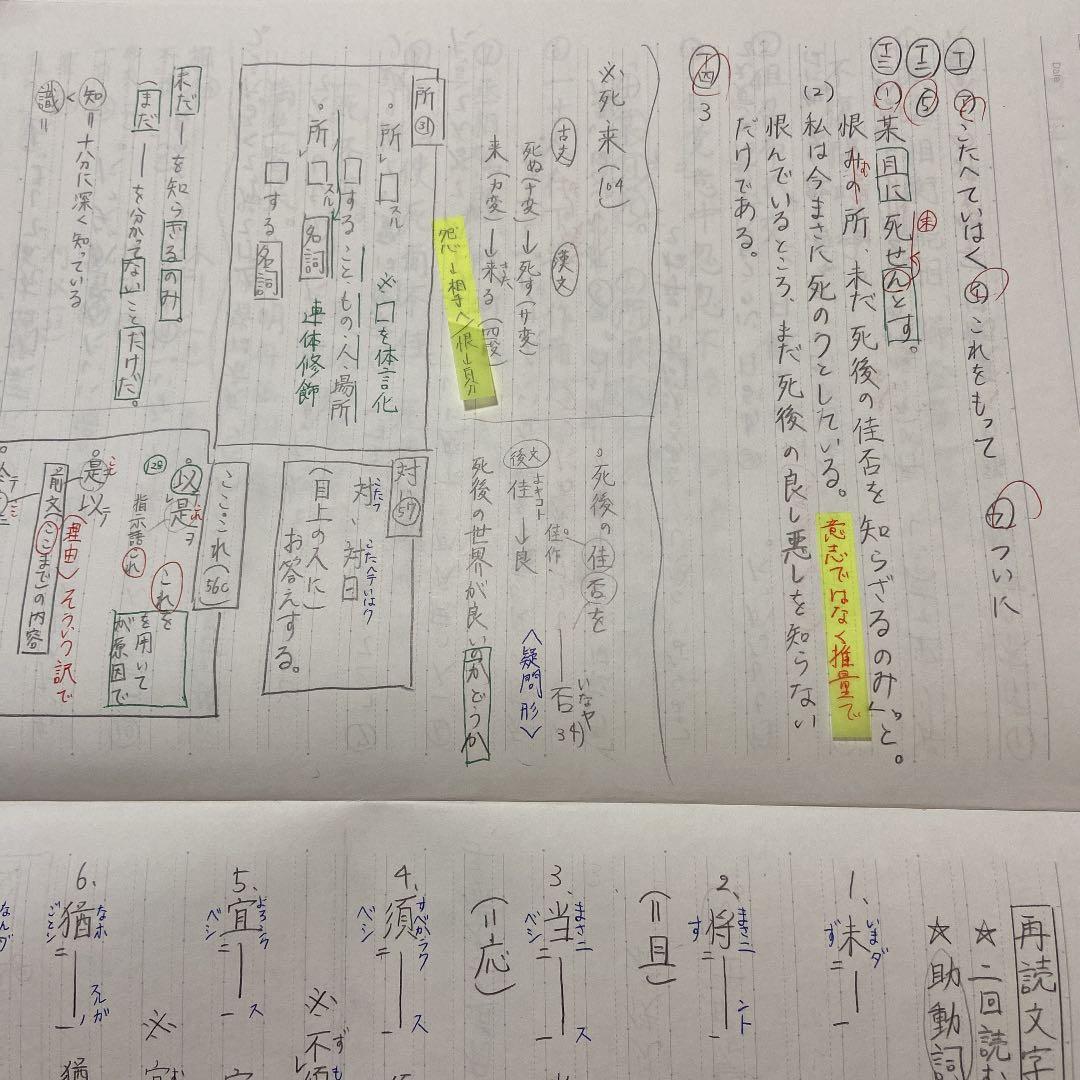 Date
エ ㋐ こたへていはく ㋑ これをもって ㋒ ついに
エ二 ⑤
エ三 (1) 某且に死せんとす。
未
恨みの所、未だ死後の佳否を知らざるのみ」と。
む
(2) 私は今まさに死のうとしている。
意志ではなく推量で
恨んでいるところ、まだ死後の良し悪しを知らない
だけである。
エ四 3
※死、来 (104)
古文 漢文
死ぬ(ナ変)→死す(サ変)
来(カ変)→来る(四変)
きた
怨→相手へ/恨→自分
所 ㉛
。所レ□スル ※□を体言化
□すること・もの・人・場所
。所レ□スル 名詞 連体修飾
□する名詞
未だ―を知らざるのみ。
まだ―を分かってないことだけだ。
知=十分に深く知っている
識=
。死後の佳否を
後文 佳→良
よキコト
佳作
否 34)
いなヤ
〈疑問形〉
死後の世界が良いのかどうか
対 57
対、対曰
こたフ こたヘテいはク
(目上の人に)
お答えする。
ここ・これ (56C)
。以レ是ヲ
これ
128 指示語これ
これを
を用いて
が原因で
。是以テ
ここヲ
(理由)そういう訳で
前文(ここまで)の内容
再読文字
★二回読む
★助動詞
1、未=―一
いまダ
ず
2、将=―一
まさニ
ント
す
(=且)
3、当=―一
まさニ
ス
ベシ
(=応)
4、須=―一
すべかラク
ス
ベシ
※不須
5、宜=―一
よろシク
ス
ベシ
※宜
6、猶=―一
なホ
スルガ
ノ
ごとシ
※猶
なんゾ